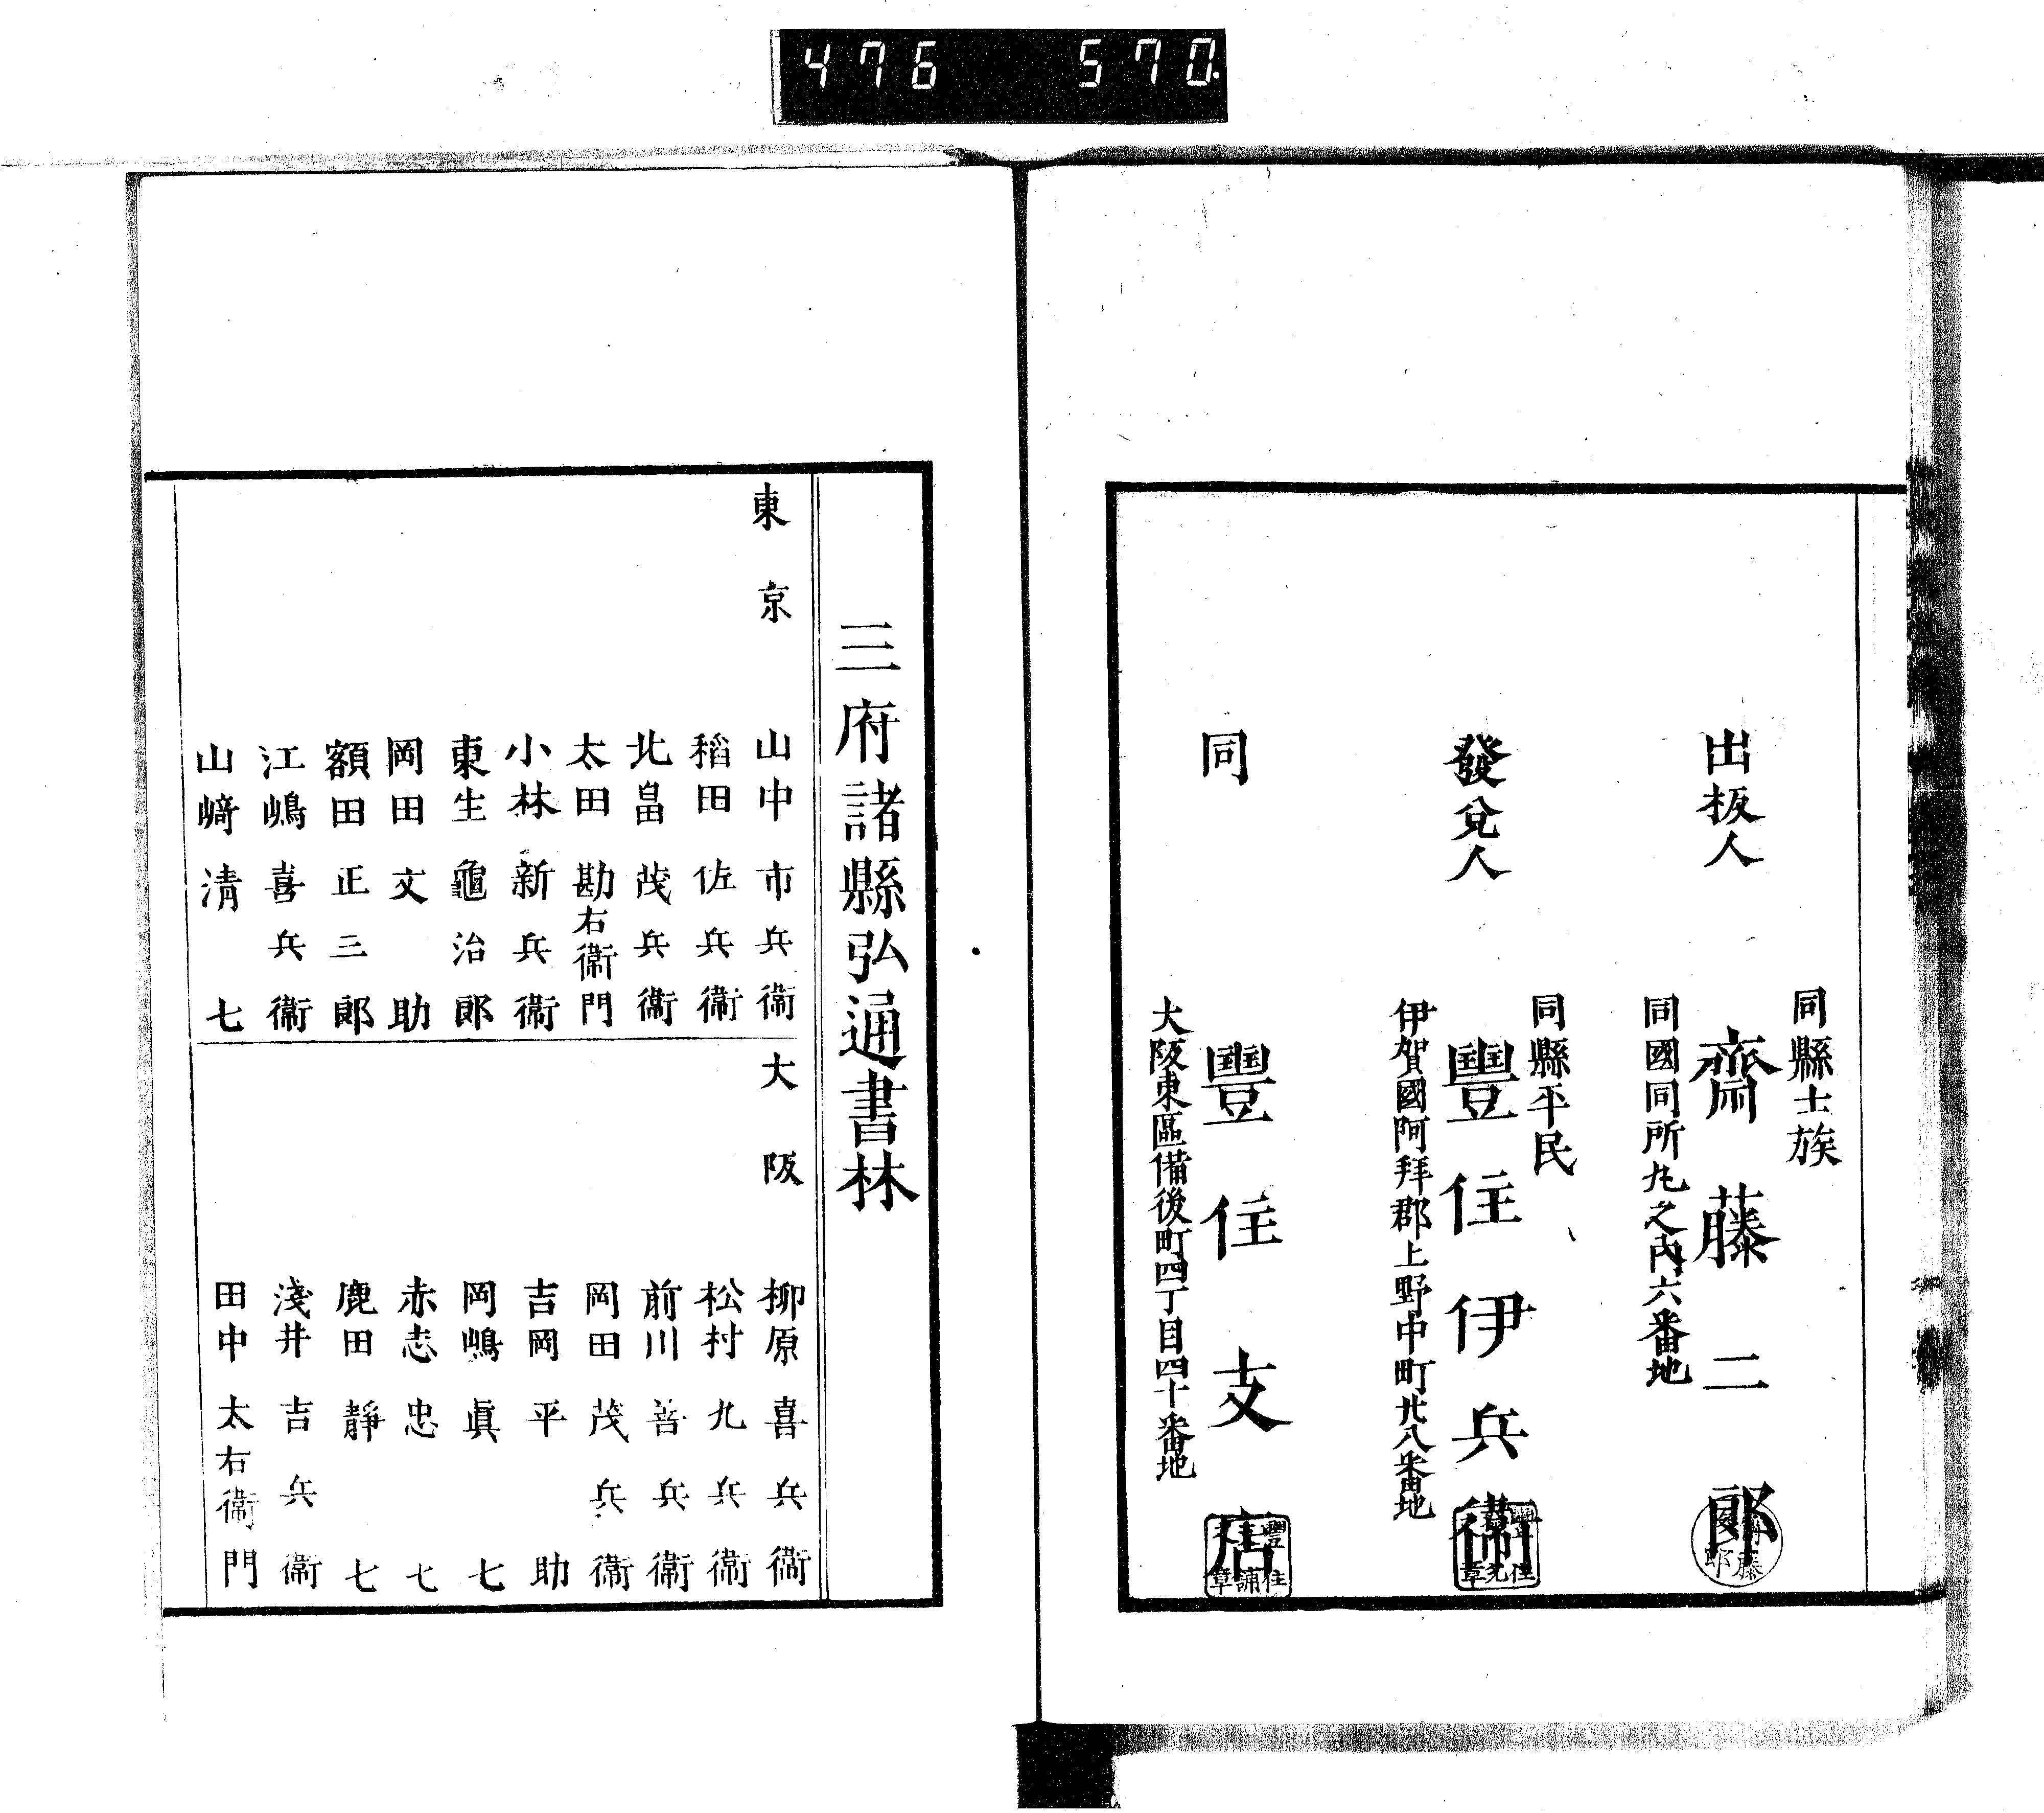 476 570.
同縣士族
出板人 齋藤二郎
同國同所丸之内六番地
同縣平民
發兌人 豐住伊兵衞
伊賀國阿拜郡上野中町廾八番地
同 豐住支店
大阪東區備後町四丁目四十番地
三府諸縣弘通書林
東京 山中市兵衞
稻田佐兵衞
北畠茂兵衞
太田勘右衞門
小林新兵衞
東生龜治郎
岡田文助
額田正三郎
江嶋喜兵衞
山嵜清七
大阪 柳原喜兵衞
松村九兵衞
前川善兵衞
岡田茂兵衞
吉岡平助
岡嶋眞七
赤志忠七
鹿田靜七
淺井吉兵衞
田中太右衞門